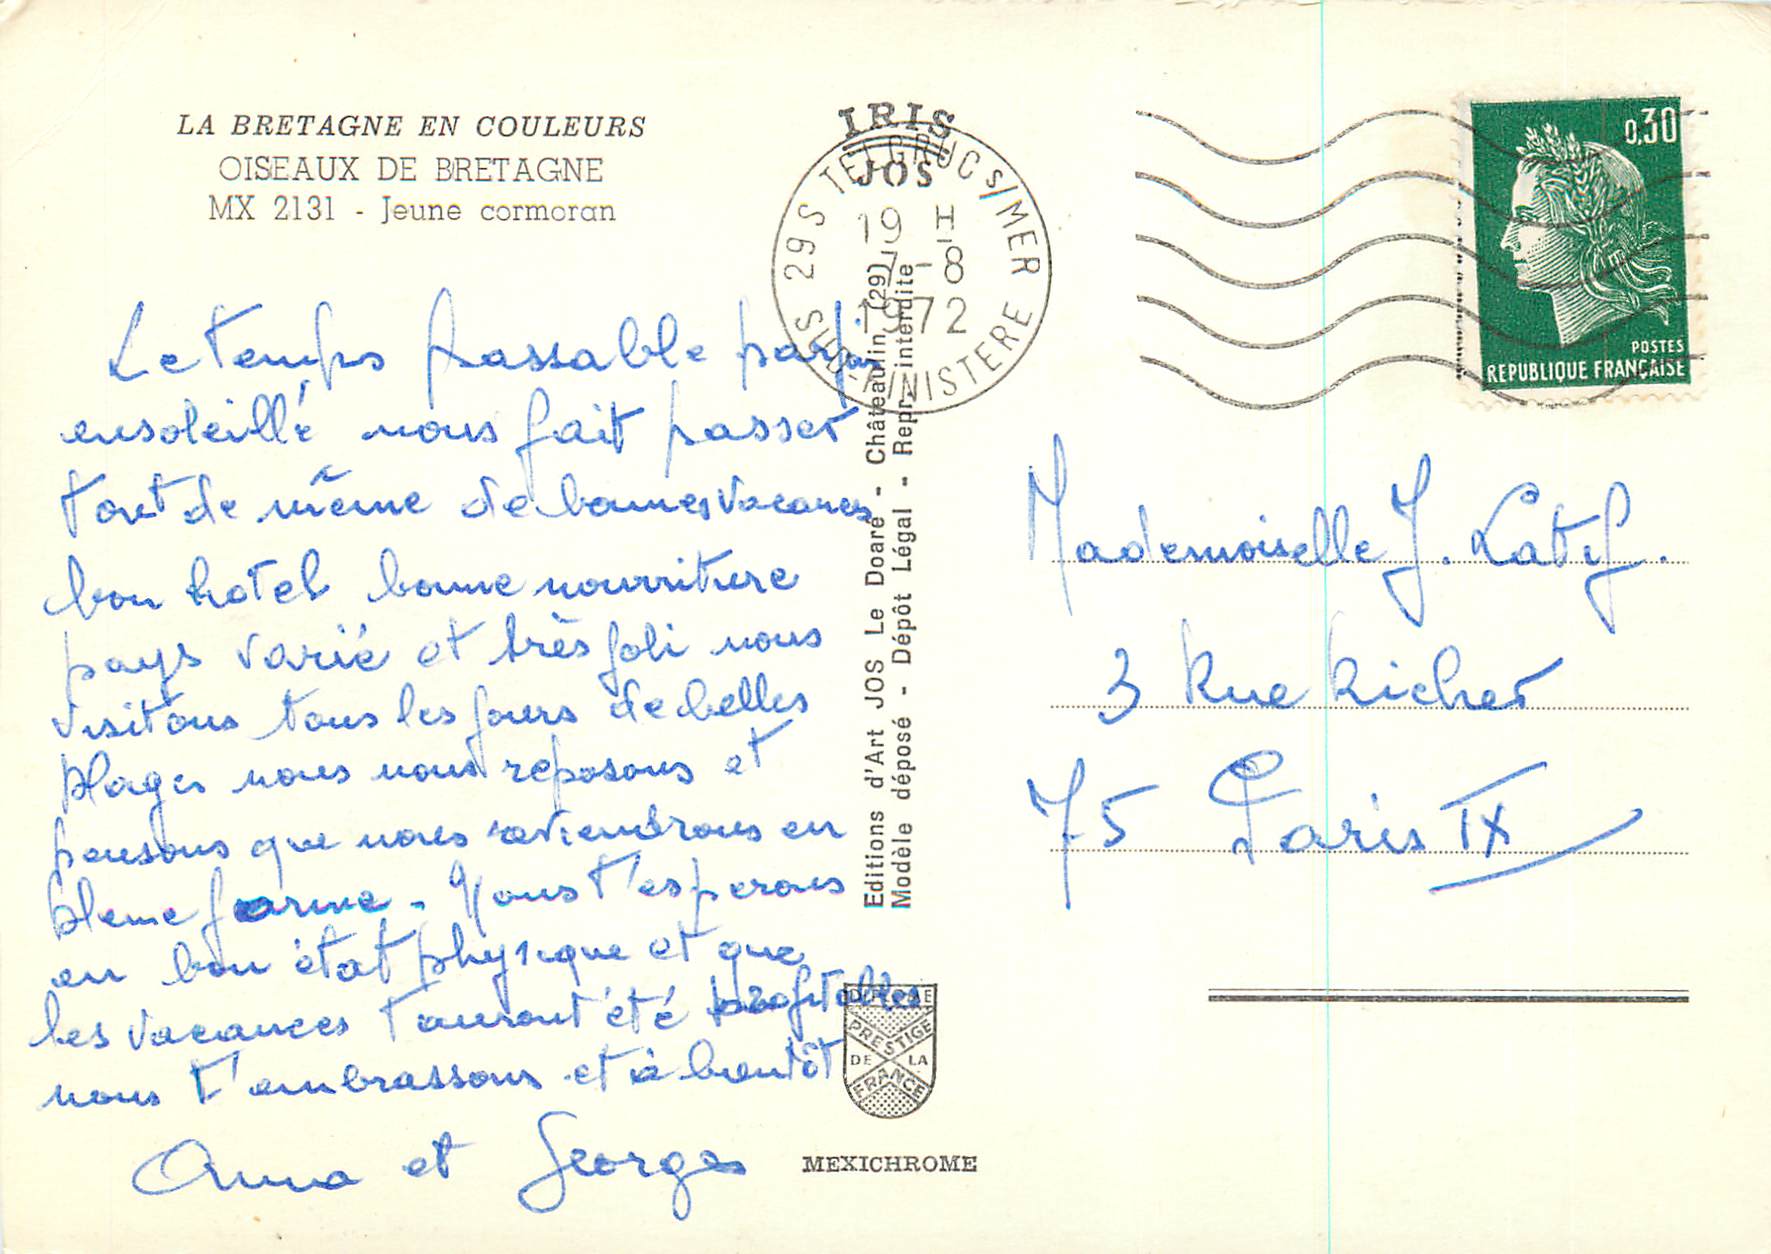 LA BRETAGNE EN COULEURS
OISEAUX DE BRETAGNE
MX 2131 - Jeune cormoran
Le temps passable parfois
ensoleillé nous fait passer
tout de même de bonnes vacances
bon hotel bonne nourriture
pays varié et très joli nous
visitons tous les jours de belles
plages nous nous reposons et
pensons que nous reviendrons en
pleine forme - Nous t'esperons
en bon état physique et que
les vacances t'auront été profitables
nous t'embrassons et à bientôt
Anna et Georges
IRIS
JOS
29 S TELGRUC S/MER
19 H
7-8
1972
SUD-FINISTERE
Editions d'Art JOS Le Doaré - Châteaulin (29)
Modèle déposé - Dépôt Légal - Repr. interdite
PRESTIGE
DE LA
FRANCE
MEXICHROME
0,30
POSTES
REPUBLIQUE FRANÇAISE
Mademoiselle J. Latif.
3 Rue Richer
75 Paris IX